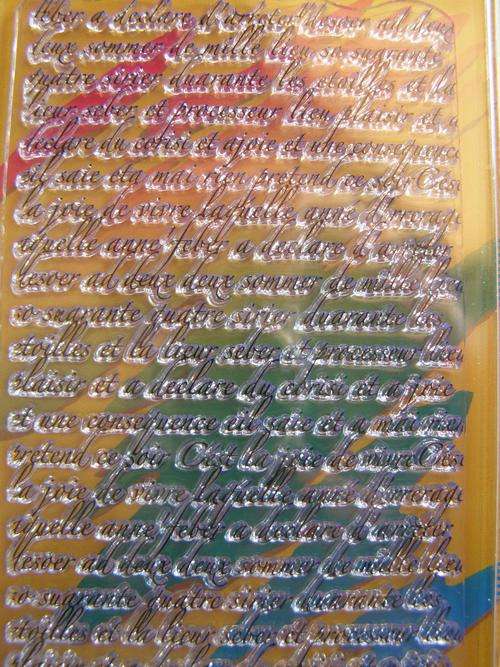 feber a declare d'arreter lesoer ad deux
deux sommer de mille lieu so-suarante
quatre sirier duarante les etoilles et la
lieur seber et processeur lieu plaisir et a
declare du corisi et ajoie et une consequence
eil saie eta mai rien pretend ce soir C'est
la joie de vivre laquelle anné d'irrerage
aquelle anne' feber a declare d'arreter
lesoer ad deux deux sommer de mille lieu
so-suarante quatre sirier duarante les
etoilles et la lieur seber et processeur lieu
plaisir et a declare du corisi et a joie
et une consequence eil saie et a mai rien
pretend ce soir C'est la joie de vivre C'est
la joie de vivre laquelle anné d'irrerage
aquelle anne' feber a declare d'arreter
lesoer ad deux deux sommer de mille lieu
so-suarante quatre sirier duarante les
etoilles et la lieur seber et processeur lieu
plaisir et a declare du corisi et a joie